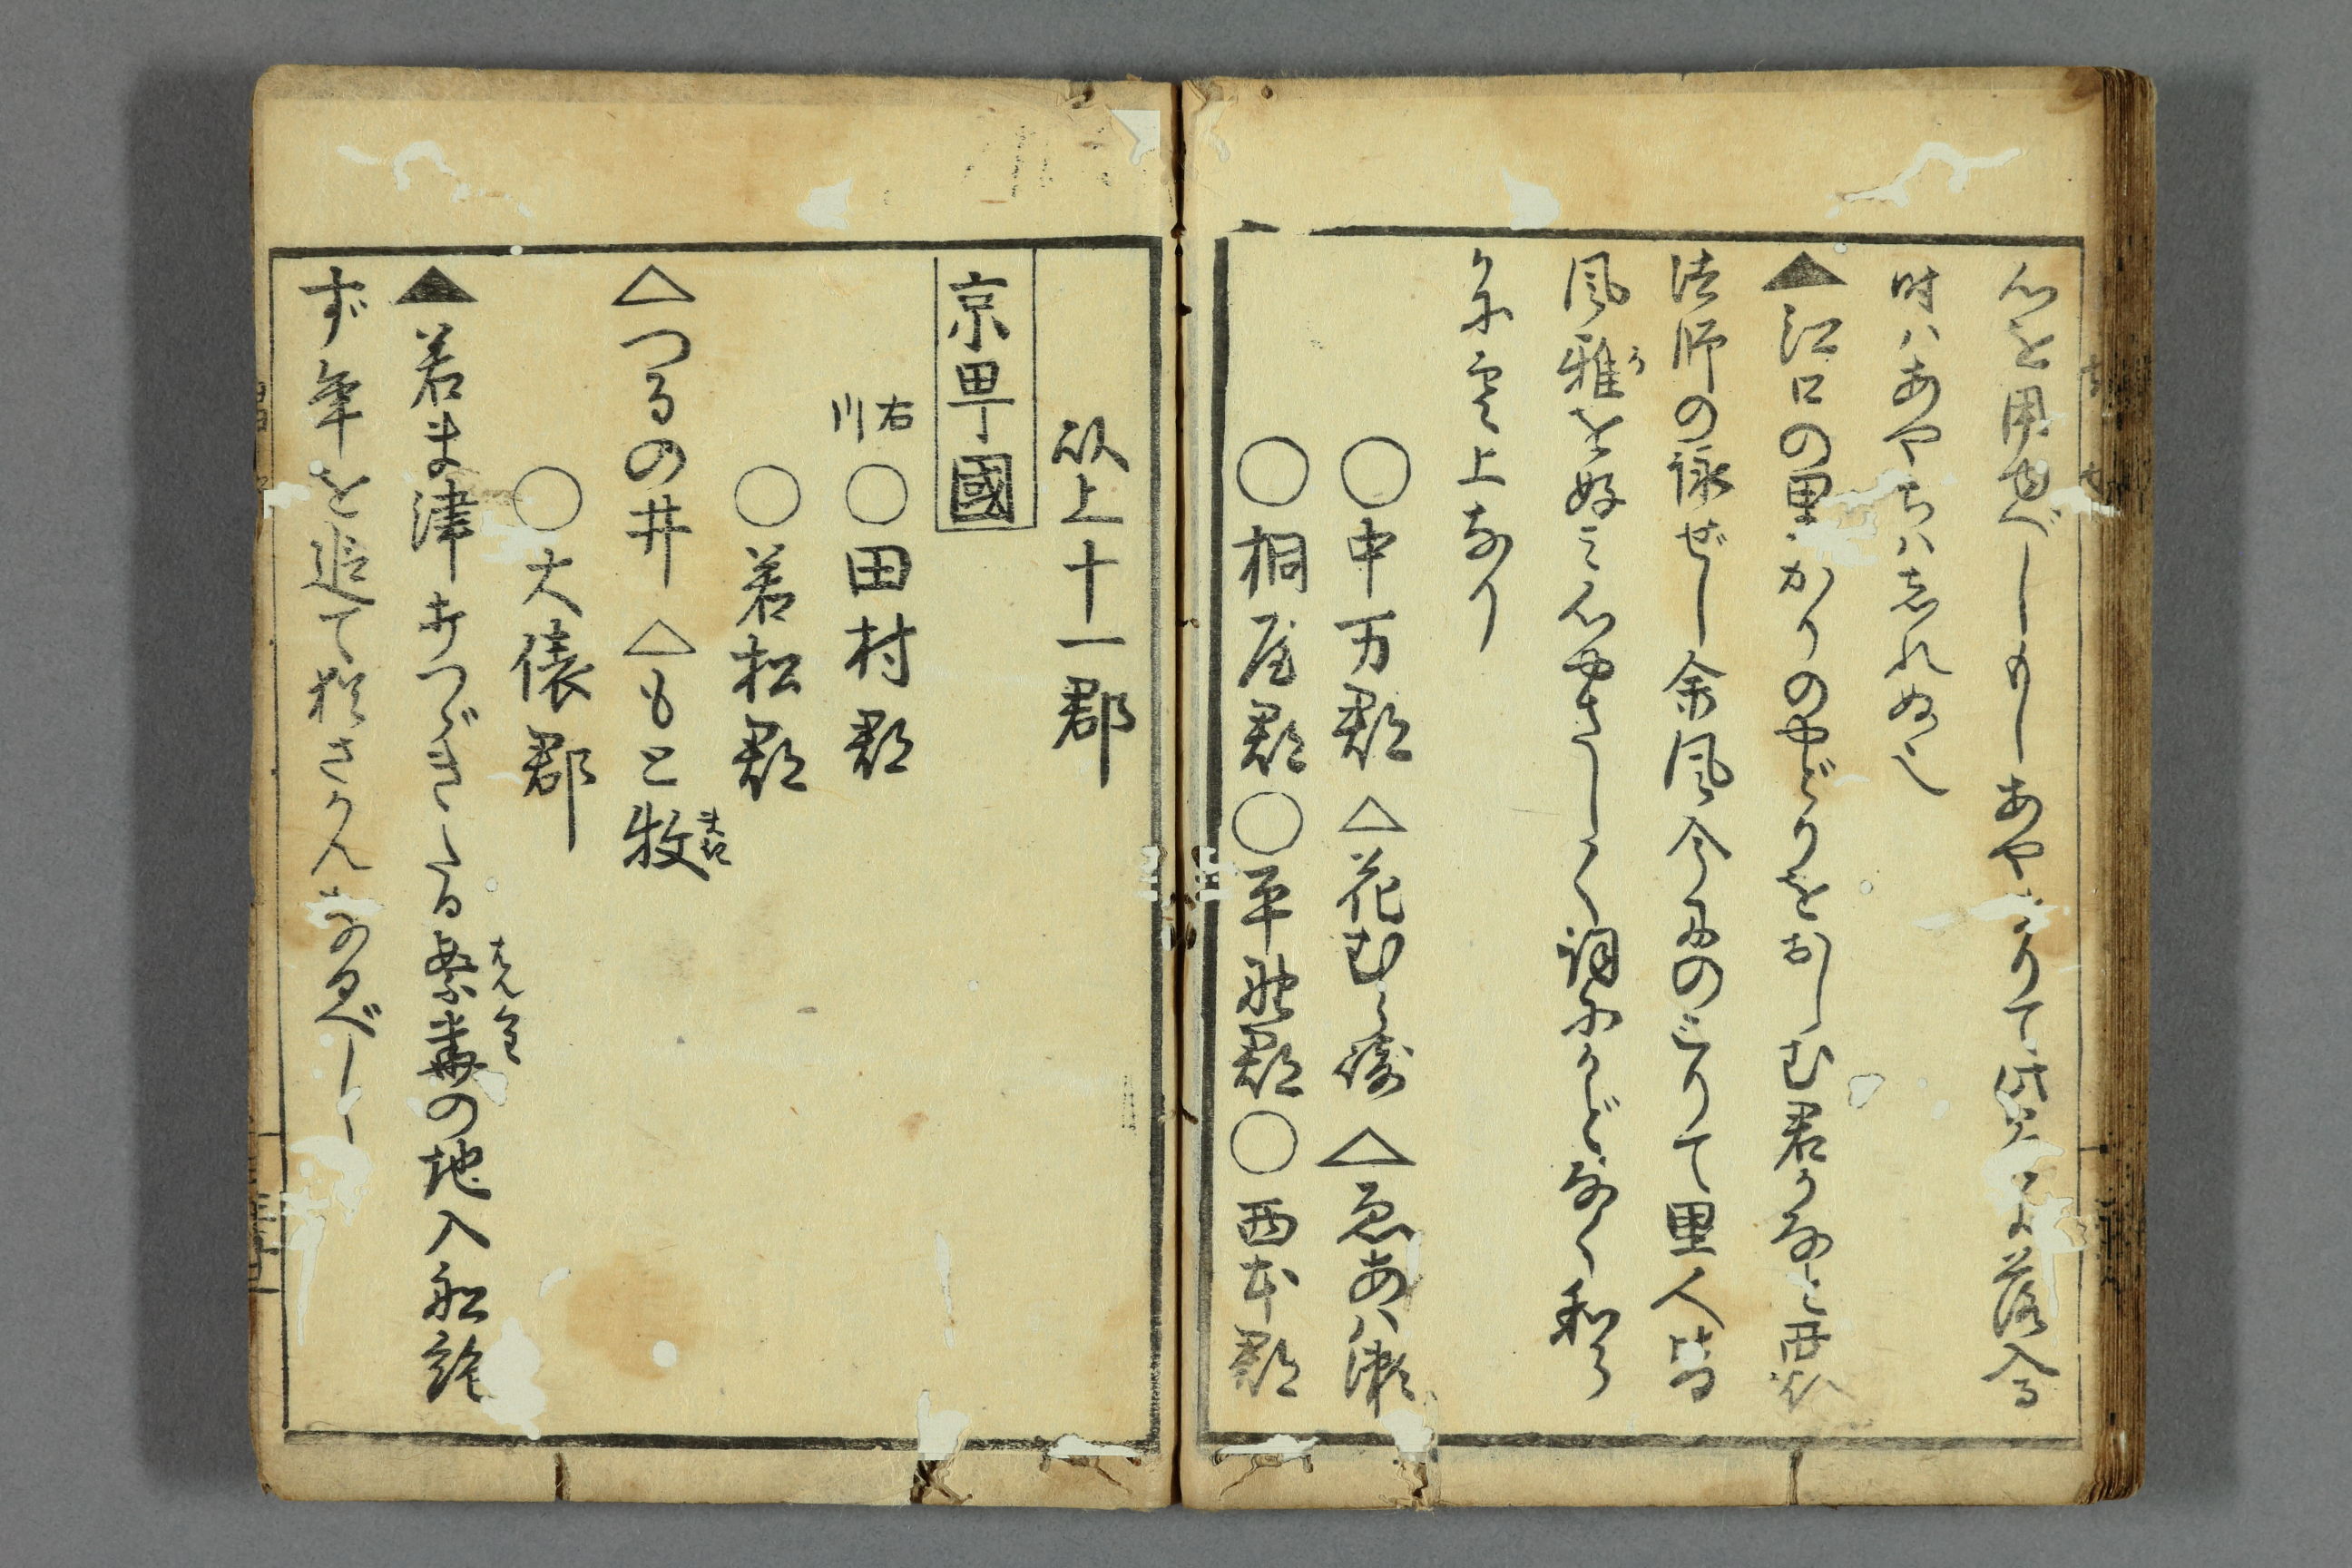 心を用ゆべしもしあやまりて此
落入る
時ハあやうハあれぬべし
▲江口の里かりのやどりをおしむ君かなと西行
法師の詠ぜし余風今にのこりて里人皆
風雅を好ミ心やさしく詞にかどなく和ら
かに言上なり
○中万郡△花むら崎△恋あハ瀬
○桐屋郡○平野郡○西本郡
以上十一郡
京甼國
右川○田村郡
○若松郡
△つるの井△もと牧
○大俵郡
▲若ま津キつゞきたる繁華の地入船絶
ず年を追て猶さかんなるべし